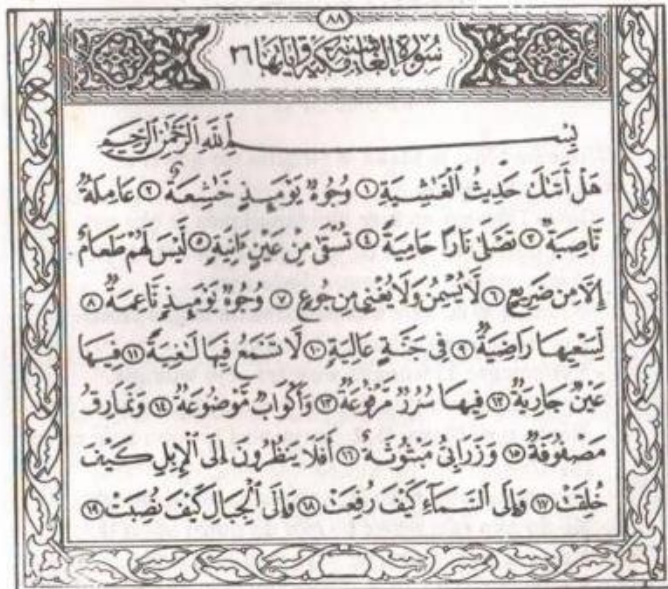 ٨٨
سُورَةُ الغَاشِيَةِ مَكِّيَّةٌ وَآيَاتُهَا ٢٦
بِسْمِ ٱللَّهِ ٱلرَّحْمَٰنِ ٱلرَّحِيمِ
هَلْ أَتَىٰكَ حَدِيثُ ٱلْغَٰشِيَةِ ١ وُجُوهٌ يَوْمَئِذٍ خَٰشِعَةٌ ٢ عَامِلَةٌ
نَّاصِبَةٌ ٣ تَصْلَىٰ نَارًا حَامِيَةً ٤ تُسْقَىٰ مِنْ عَيْنٍ ءَانِيَةٍ ٥ لَّيْسَ لَهُمْ طَعَامٌ
إِلَّا مِن ضَرِيعٍ ٦ لَّا يُسْمِنُ وَلَا يُغْنِي مِن جُوعٍ ٧ وُجُوهٌ يَوْمَئِذٍ نَّاعِمَةٌ ٨
لِّسَعْيِهَا رَاضِيَةٌ ٩ فِي جَنَّةٍ عَالِيَةٍ ١٠ لَّا تَسْمَعُ فِيهَا لَٰغِيَةً ١١ فِيهَا
عَيْنٌ جَارِيَةٌ ١٢ فِيهَا سُرُرٌ مَّرْفُوعَةٌ ١٣ وَأَكْوَابٌ مَّوْضُوعَةٌ ١٤ وَنَمَارِقُ
مَصْفُوفَةٌ ١٥ وَزَرَابِيُّ مَبْثُوثَةٌ ١٦ أَفَلَا يَنظُرُونَ إِلَى ٱلْإِبِلِ كَيْفَ
خُلِقَتْ ١٧ وَإِلَى ٱلسَّمَآءِ كَيْفَ رُفِعَتْ ١٨ وَإِلَى ٱلْجِبَالِ كَيْفَ نُصِبَتْ ١٩